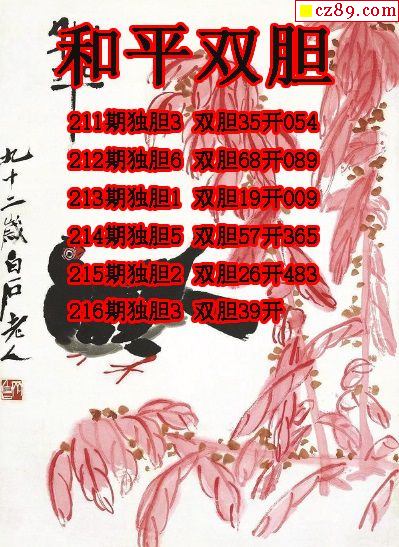 cz89.com
和平双胆
211期独胆3 双胆35开054
212期独胆6 双胆68开089
213期独胆1 双胆19开009
214期独胆5 双胆57开365
215期独胆2 双胆26开483
216期独胆3 双胆39开
九十二岁白石老人